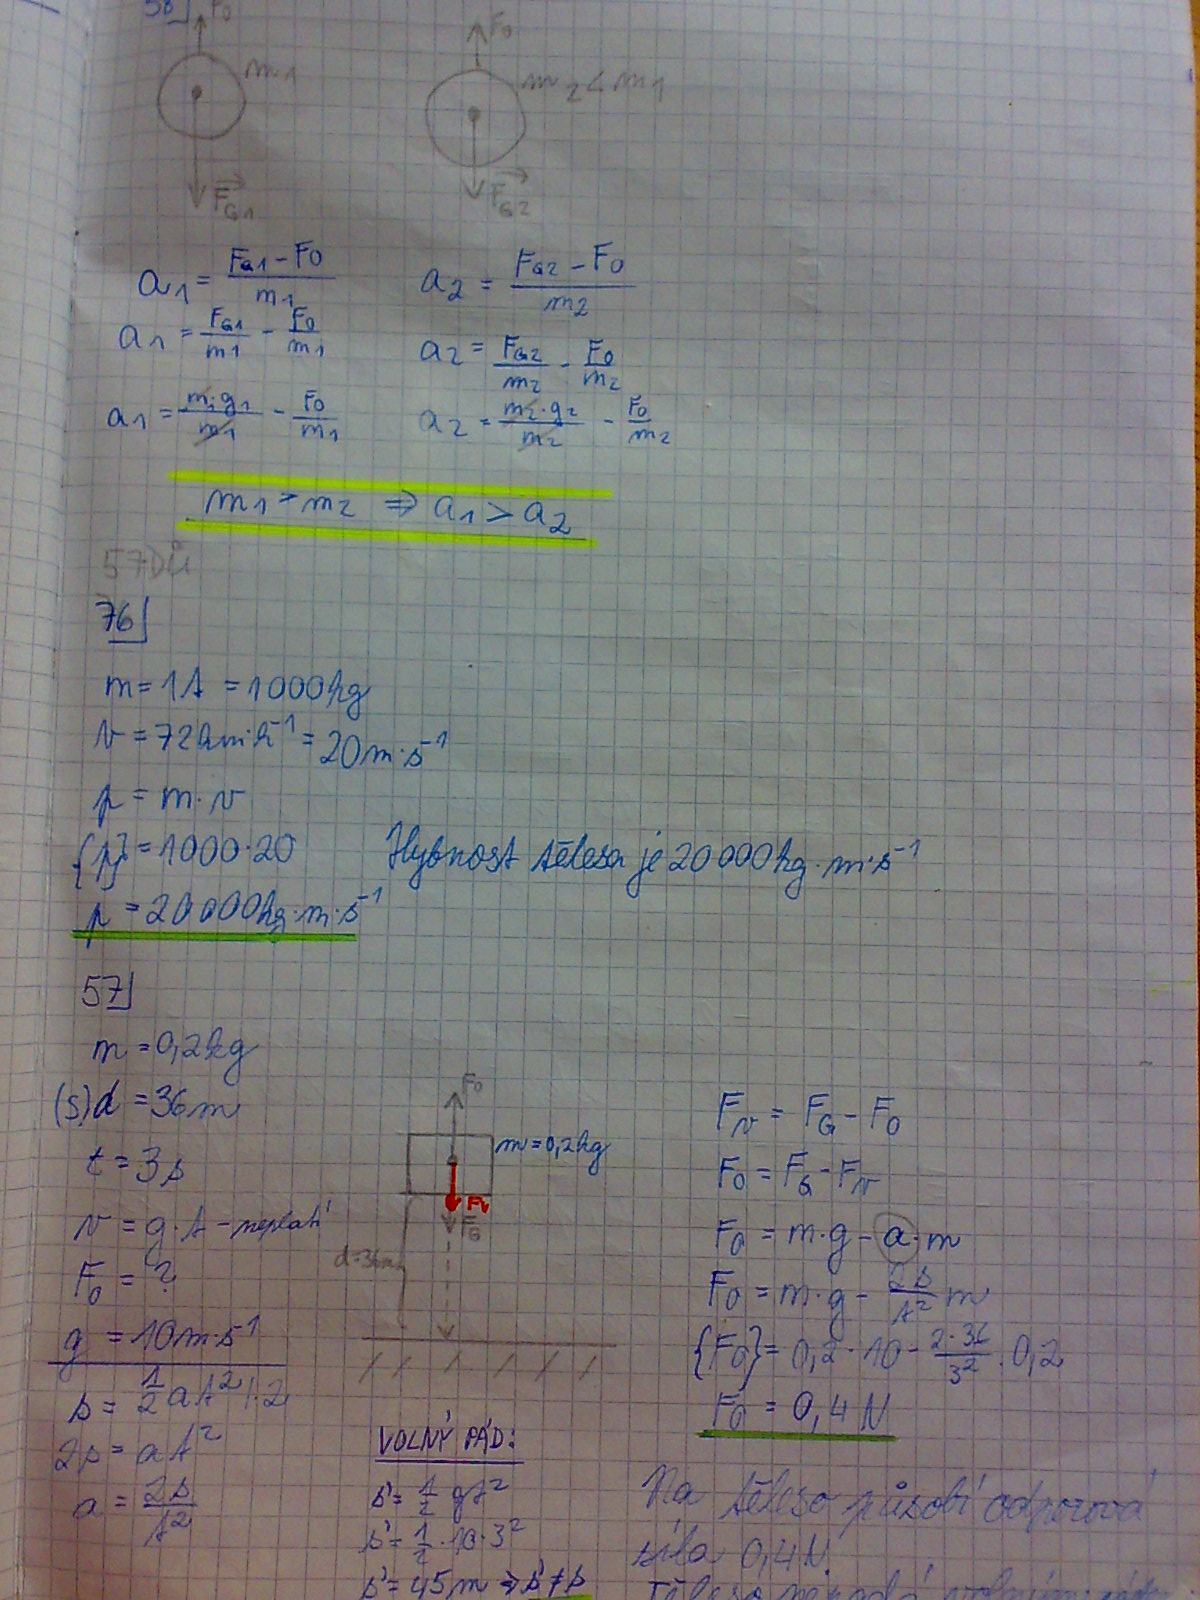 58
F₀
F₀
m₁
m₂ < m₁
F_G1
F_G2
a₁ = (F_G1 − F₀)/m₁
a₂ = (F_G2 − F₀)/m₂
a₁ = F_G1/m₁ − F₀/m₁
a₂ = F_G2/m₂ − F₀/m₂
a₁ = m₁·g₁/m₁ − F₀/m₁
a₂ = m₂·g₂/m₂ − F₀/m₂
m₁ > m₂ ⇒ a₁ > a₂
57 DÚ
76
m = 1t = 1000kg
v = 72km·h⁻¹ = 20m·s⁻¹
p = m·v
{p} = 1000·20
Hybnost tělesa je 20 000kg·m·s⁻¹
p = 20 000kg·m·s⁻¹
57
m = 0,2kg
(s)d = 36m
t = 3s
v = g·t – neplatí
F₀ = ?
g = 10m·s⁻¹
s = 1/2 at² |·2
2s = at²
a = 2s/t²
F₀
m = 0,2kg
Fv
F_G
d=36m
VOLNÝ PÁD:
s' = 1/2 gt²
s' = 1/2·10·3²
s' = 45m ⇒ s' ≠ s
Fv = F_G − F₀
F₀ = F_G − Fv
F₀ = m·g − a·m
F₀ = m·g − 2s/t² m
{F₀} = 0,2·10 − 2·36/3² · 0,2
F₀ = 0,4N
Na těleso působí odporová
síla 0,4N.
Těleso